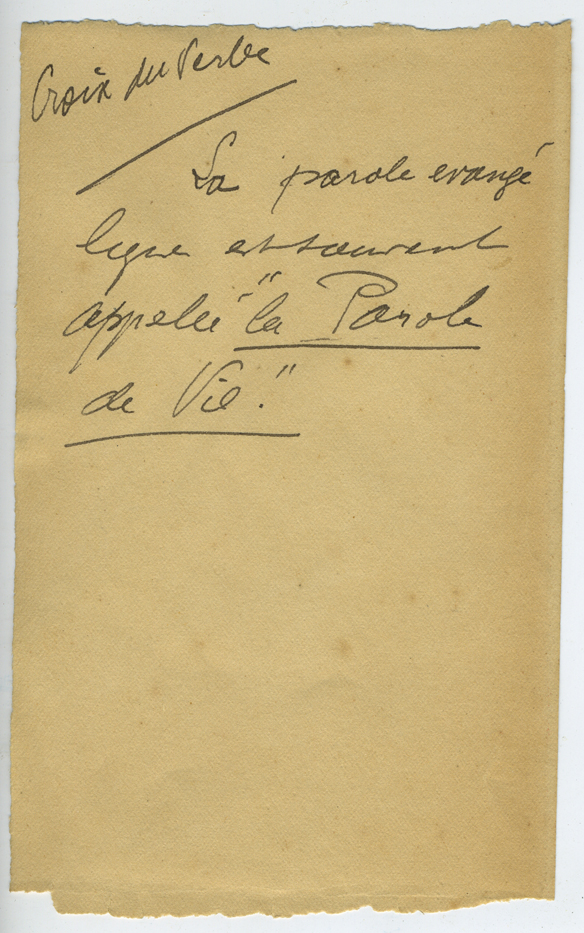 Croix du Verbe
La parole evangé
lique est souvent
appelée "la Parole
de Vie."